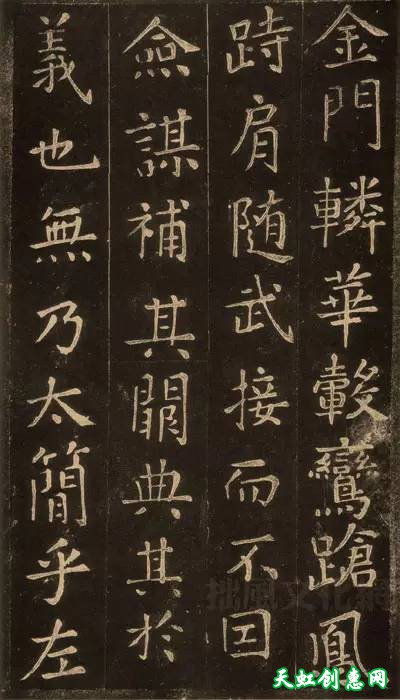 金門轔華轂鸞蹌鳳
跱肩随武接而不囙
僉謀補其闕典其於
義也無乃太簡乎左
拙風文化網
天虹创意网